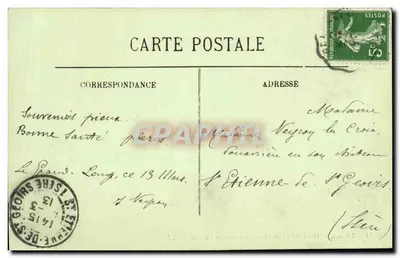 CARTE POSTALE
CORRESPONDANCE
ADRESSE
Souvenirs pieux
Bonne Santé
Le Grand Lemps, ce 13 Mars
Madame
Veyron la Croix
en son château
St Etienne-de-St Geoirs
(Isère)
ST ETIENNE-DE-ST GEOIRS
ISÈRE
14 15
13 - 3
13
POSTES
5c
CPARAMA